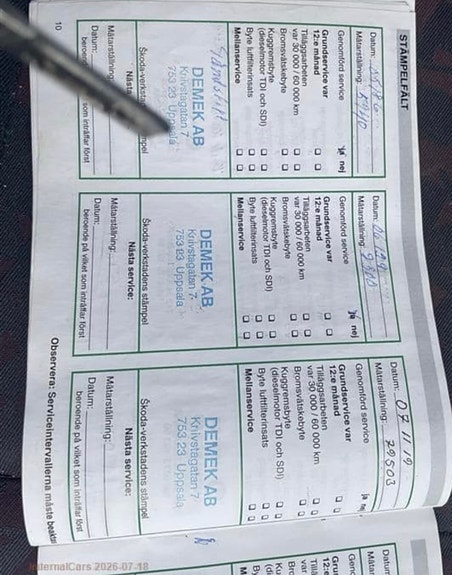 STÄMPELFÄLT
Datum:
Mätarställning:
Genomförd service
ja nej
Grundservice var
12:e månad
Tilläggsarbeten
var 30 000 / 60 000 km
Bromsvätskebyte
Kuggremsbyte
(dieselmotor TDI och SDI)
Byte luftfilterinsats
Mellanservice
DEMEK AB
Knivstagatan 7
753 23 Uppsala
Skoda-verkstadens stämpel
Nästa
Mätarställning:
Datum:
som inträffar först
10
Datum:
Mätarställning:
Genomförd service
ja nej
Grundservice var
12:e månad
Tilläggsarbeten
var 30 000 / 60 000 km
Bromsvätskebyte
Kuggremsbyte
(dieselmotor TDI och SDI)
Byte luftfilterinsats
Mellanservice
DEMEK AB
Knivstagatan 7
753 23 Uppsala
Škoda-verkstadens stämpel
Nästa service:
Mätarställning:
Datum:
beroende på vilket som inträffar först
Datum: 07 11 19
Mätarställning: 79503
Genomförd service
ja
Grundservice var
12:e månad
Tilläggsarbeten
var 30 000 / 60 000 km
Bromsvätskebyte
Kuggremsbyte
(dieselmotor TDI och SDI)
Byte luftfilterinsats
Mellanservice
DEMEK AB
Knivstagatan 7
753 23 Uppsala
Škoda-verkstadens stämpel
Nästa service:
Mätarställning:
Datum:
beroende på vilket som inträffar först
Observera: Serviceintervallerna måste
Datum
Mätar
Geno
Grun
12:e
Tillä
var
Bro
Kug
(die
Byte
Mell
InternalCars 2026-07-18